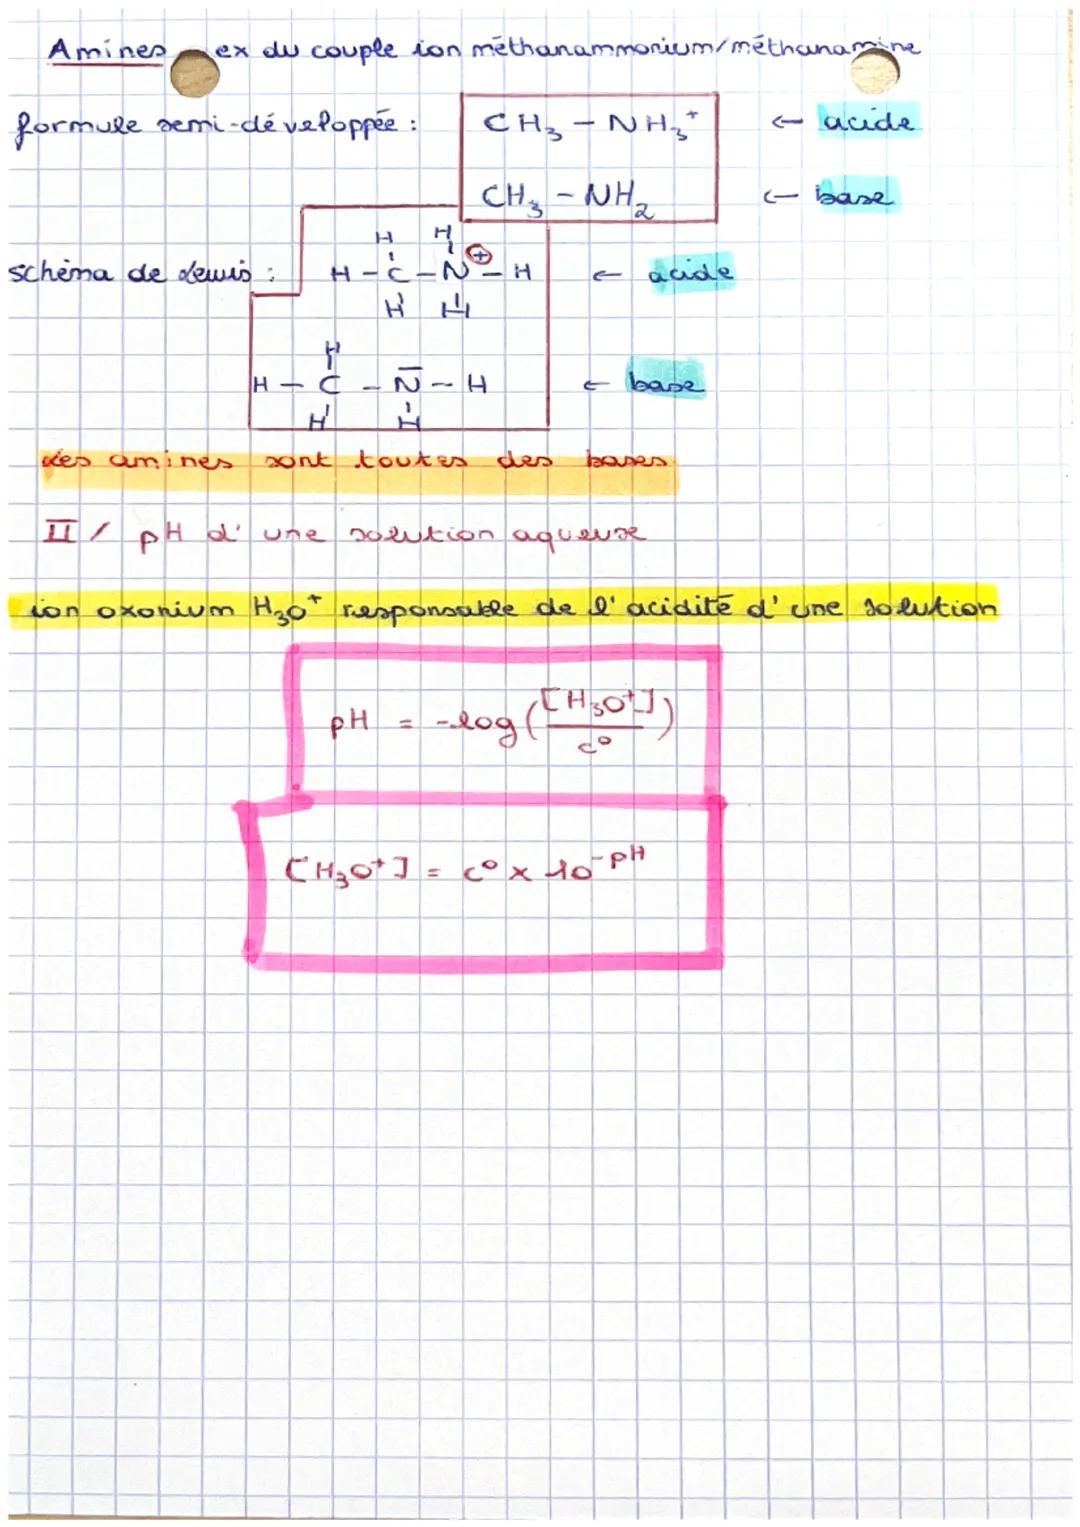 Amines ex du couple ion méthanammonium/méthanamine
formule semi-développée : CH₃ - NH₃⁺ ← acide
CH₃ - NH₂ ← base
H H
schéma de Lewis : H - C - N⊕ - H ← acide
H H
H
H - C - N̅ - H ← base
H H
Les amines sont toutes des bases.
II / pH d'une solution aqueuse
ion oxonium H₃O⁺ responsable de l'acidité d'une solution
pH = -log([H₃O⁺]/c°)
[H₃O⁺] = c° × 10⁻ᵖᴴ